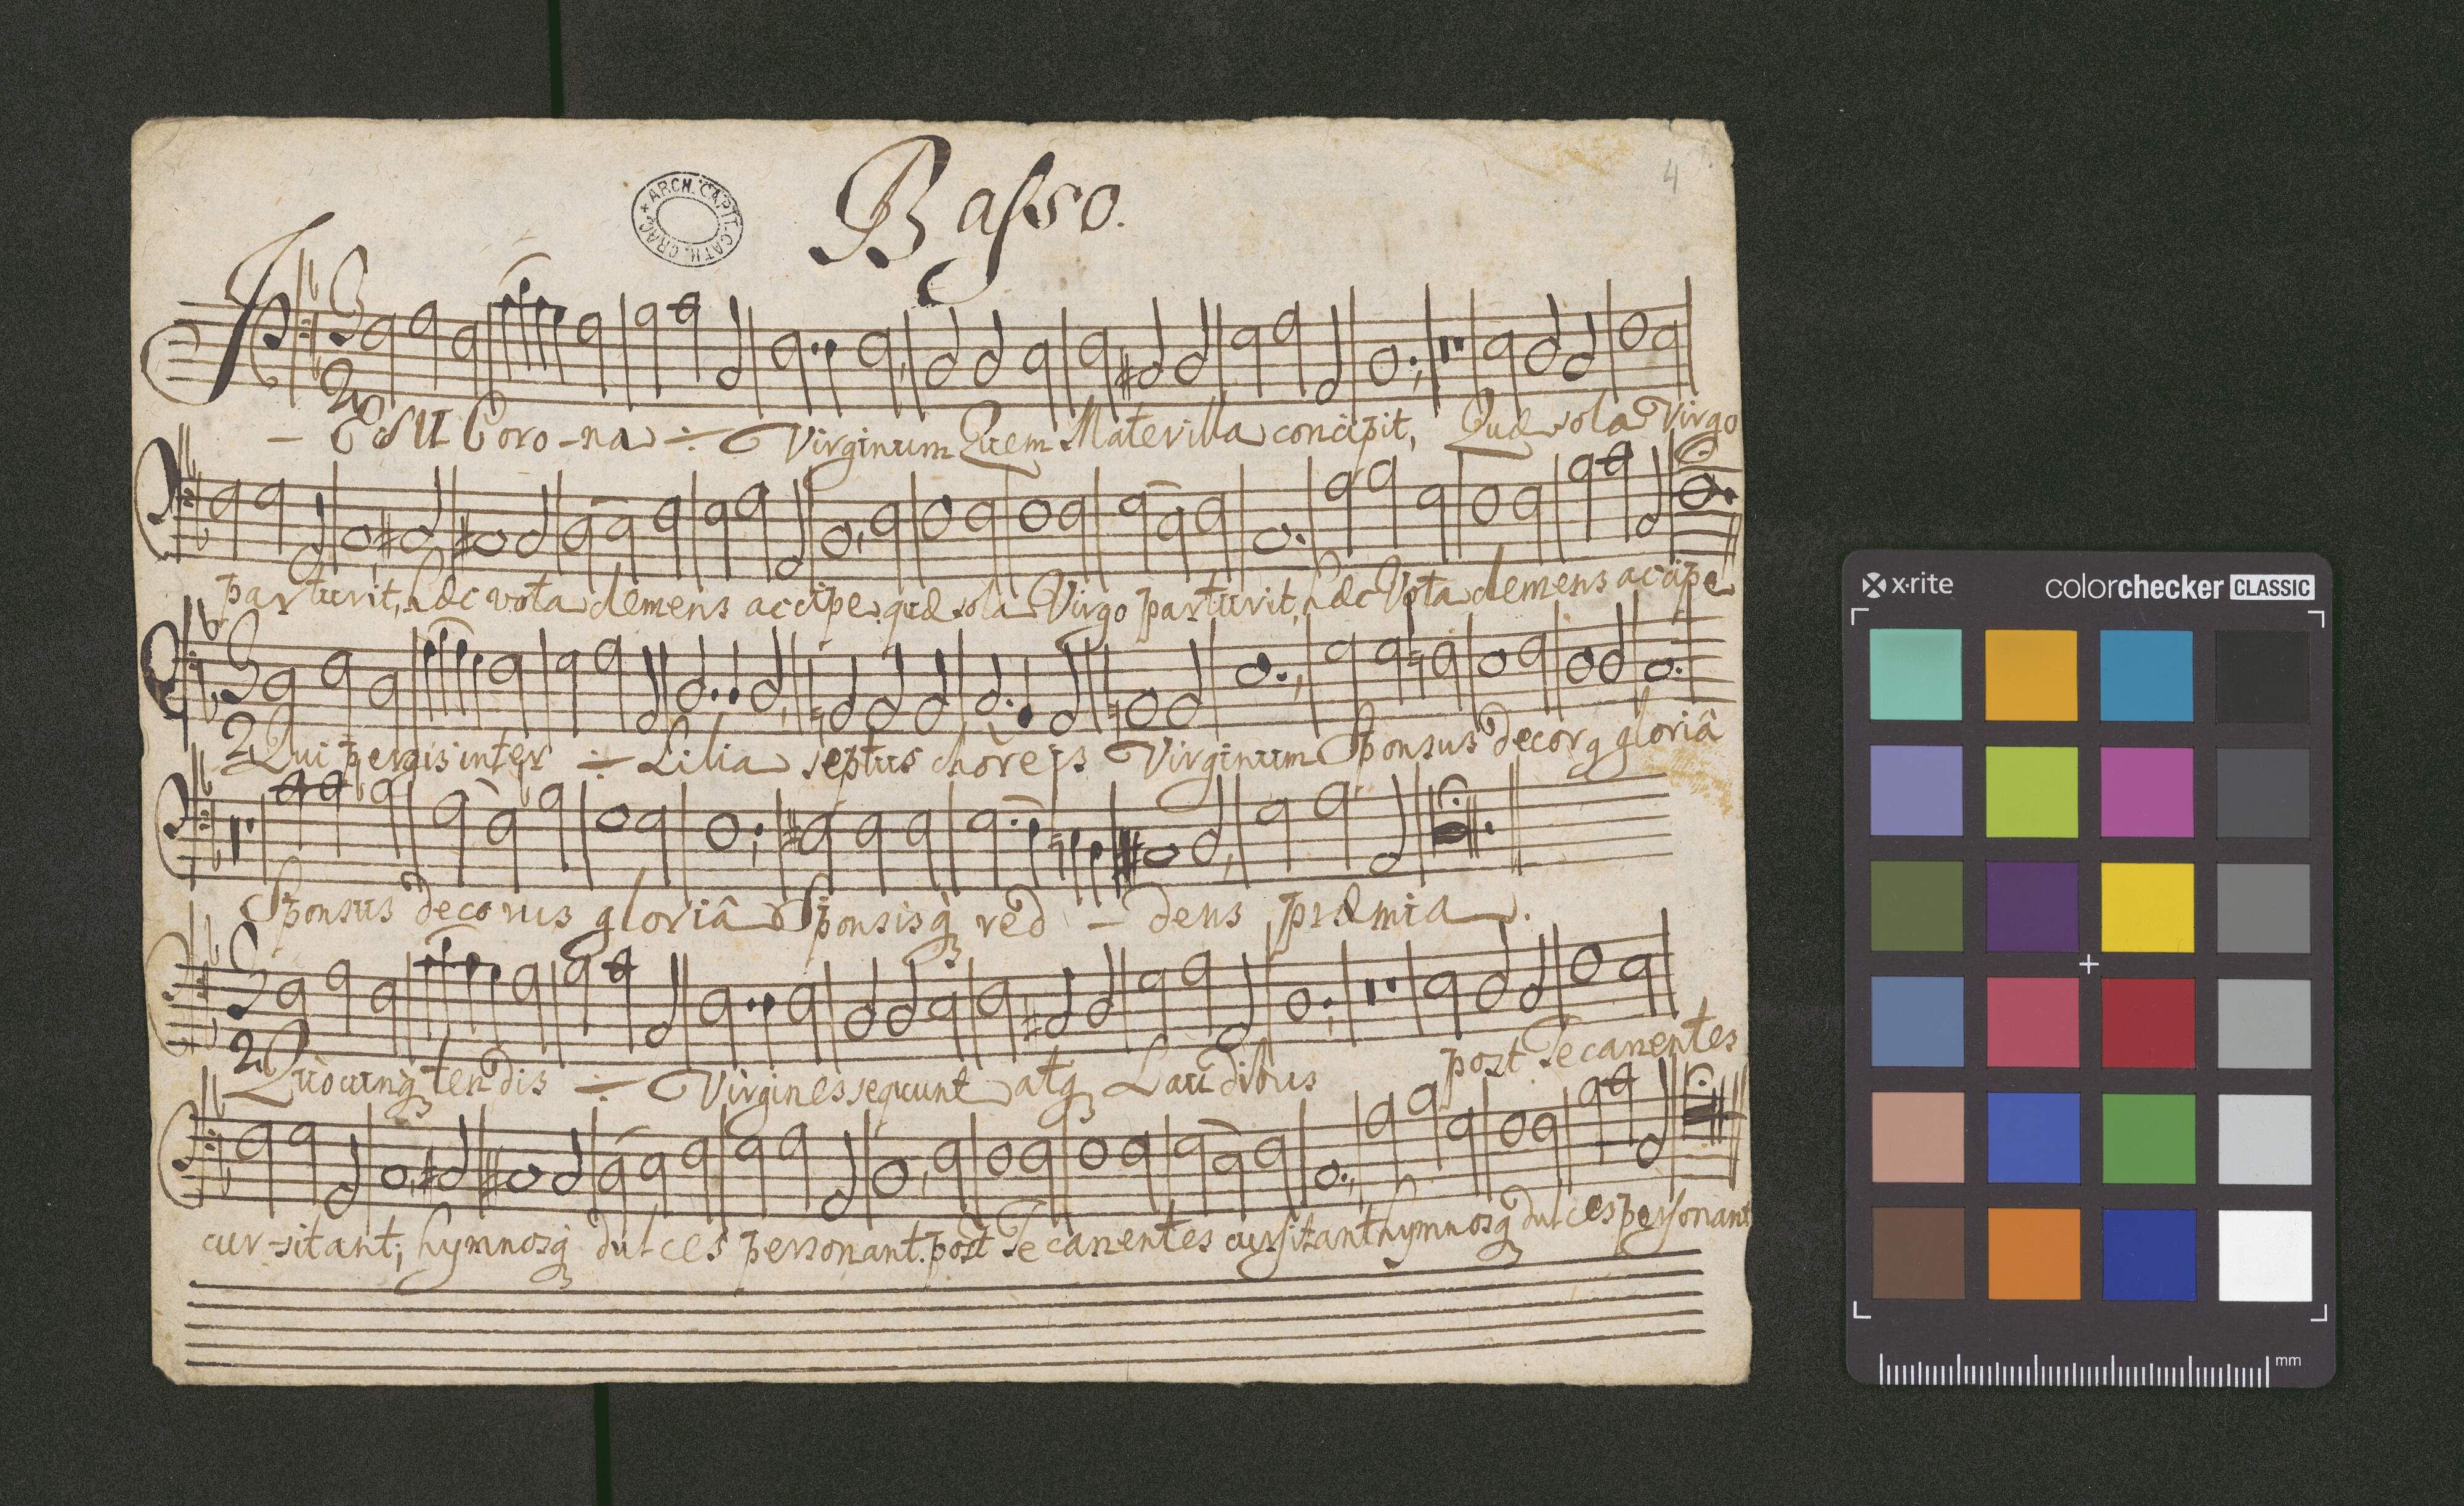 Basso.
ARCH. CAPIT. CATH. CRAC.
4
3
2
JESU Coro-na ÷ Virginum Quem Mater illa concipit, Quæ sola Virgo
parturit, hæc vota clemens accipe. quæ sola Virgo parturit, hæc Vota clemens accipe
3
2
Qui pergis inter ÷ Lilia septus chòreis Virginum Sponsus decorq gloriâ
Sponsus decorus gloriâ Sponsisq̀ red - dens præmia.
3
2
Quòcunq̀ tendis ÷ Virgines sequunt atq Laudibus post Te canentes
cur-sitant; hymnosq̀ dulces personant. post Te canentes cursitant hymnosq̀ dulces personant
x·rite
colorchecker CLASSIC
mm